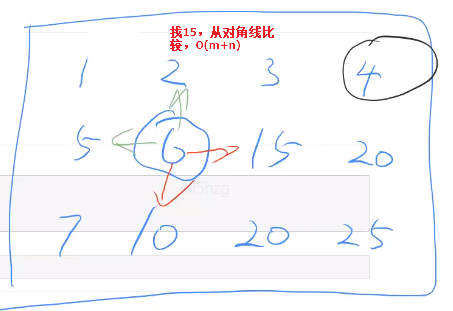 找15，从对角线比
较，O(m+n)
1 2 3 4
5 6 15 20
7 10 20 25